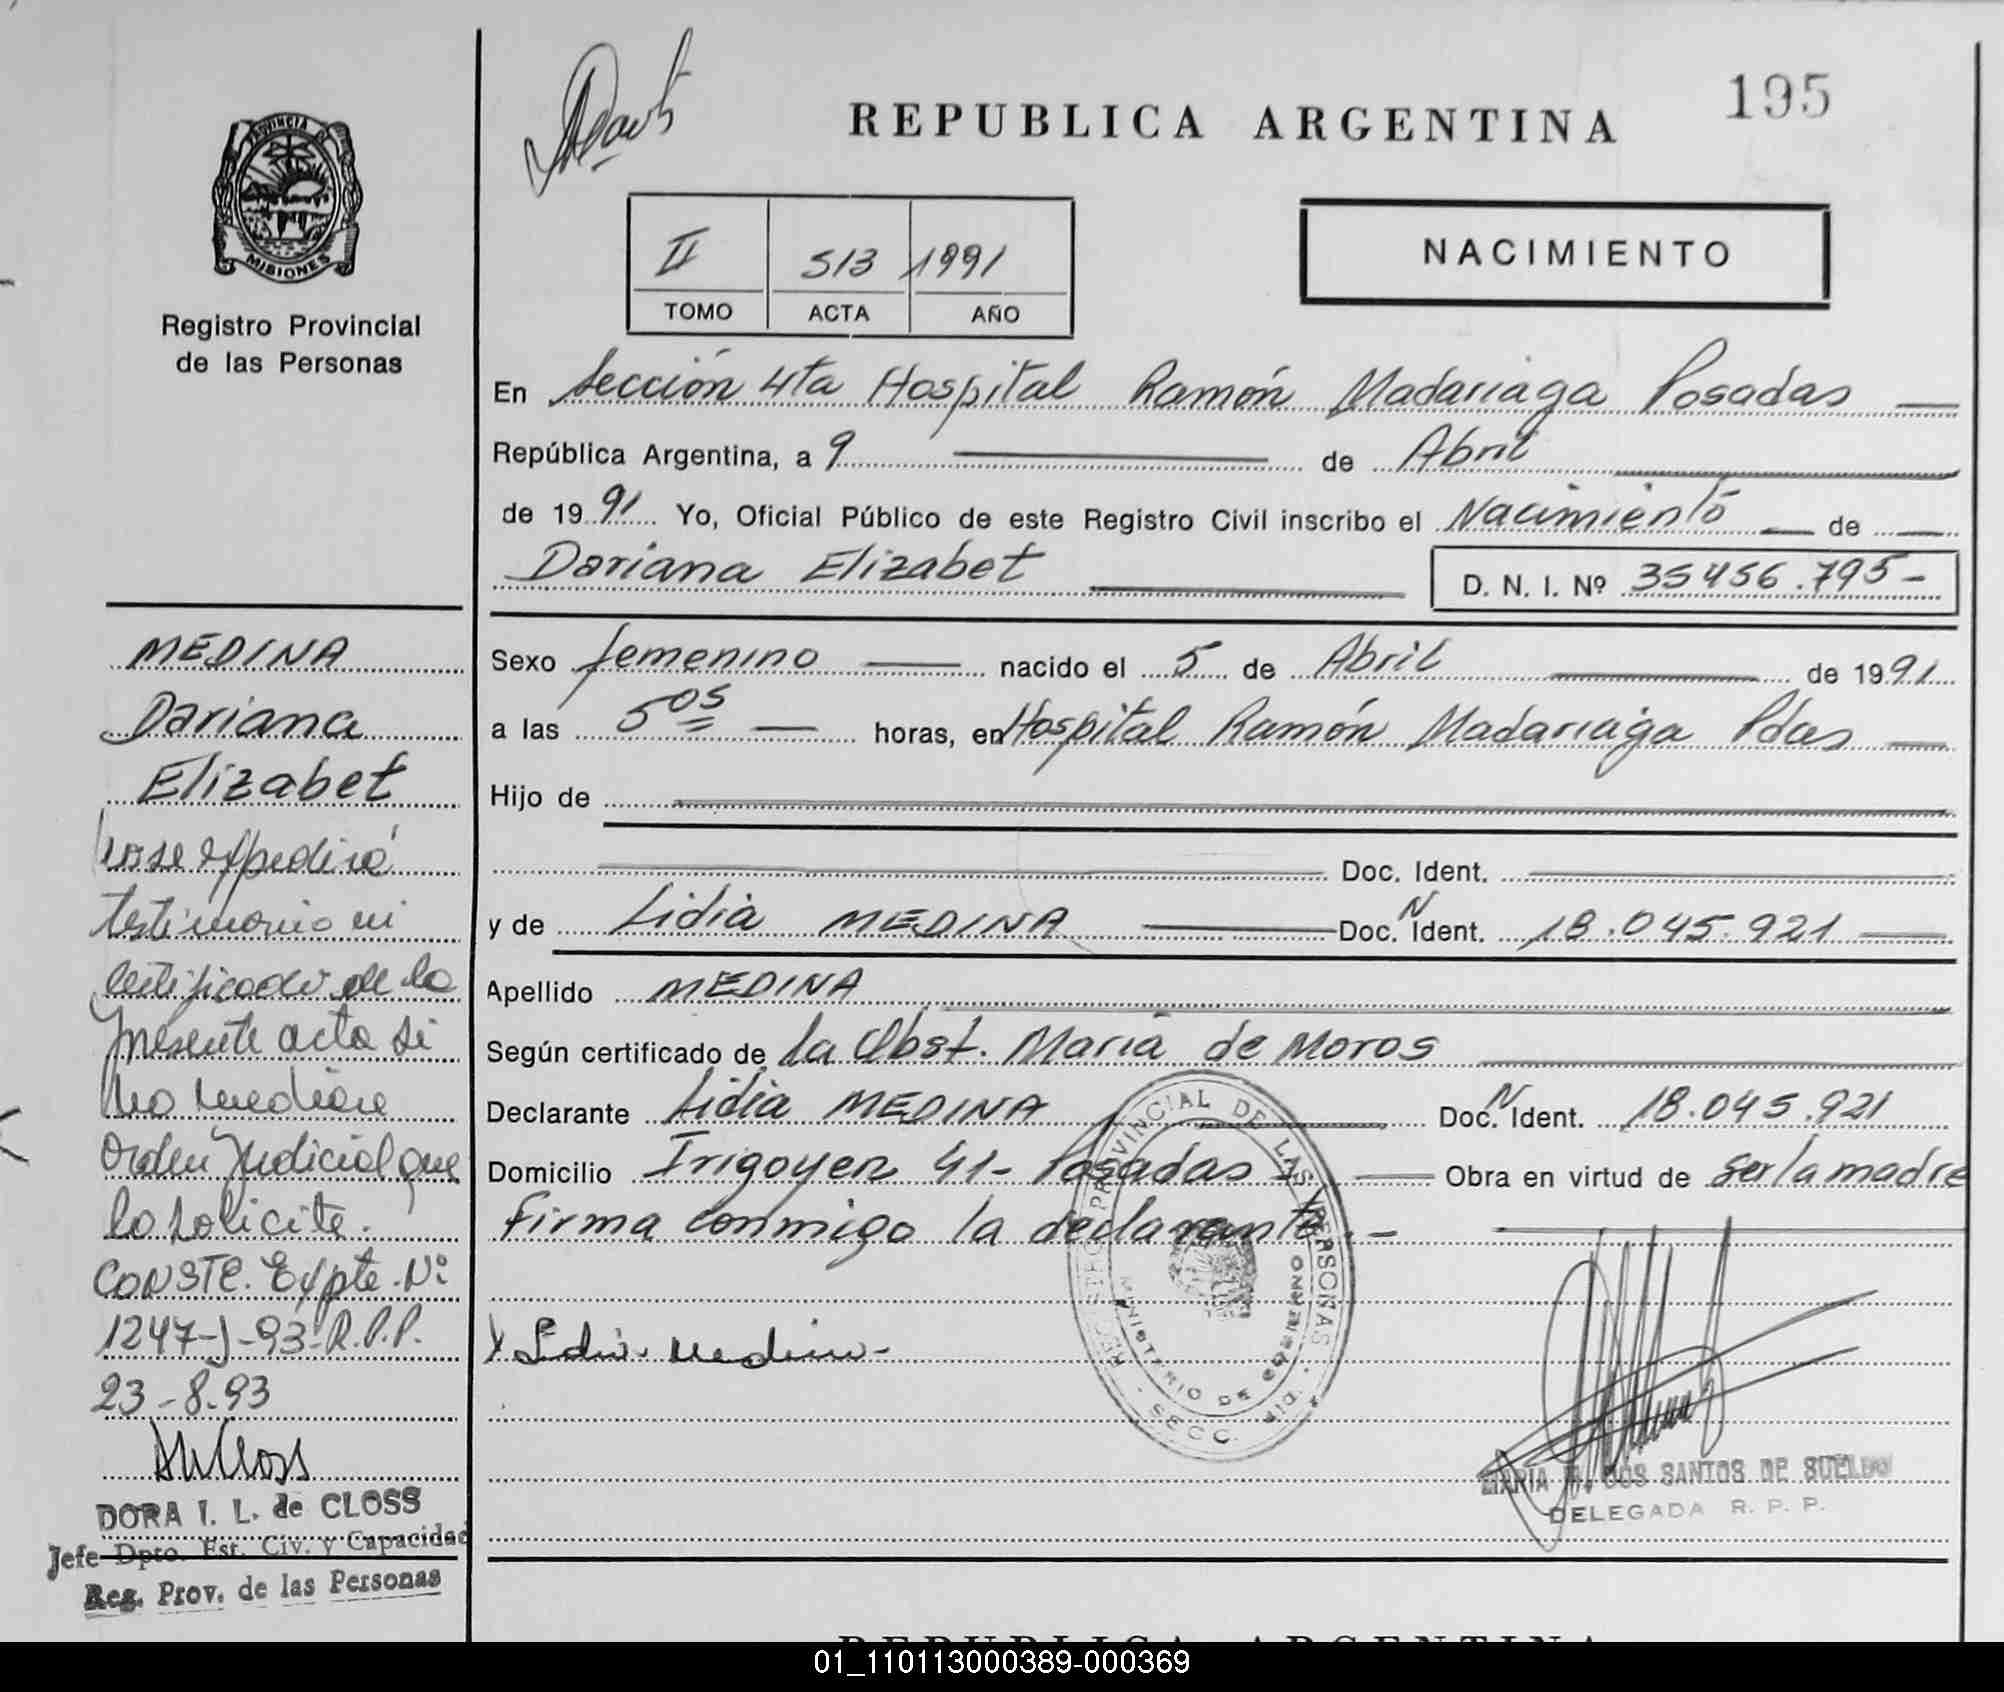 195
REPUBLICA ARGENTINA
PROVINCIA DE
MISIONES
Registro Provincial
de las Personas
II 513 1991
TOMO ACTA AÑO
NACIMIENTO
En Sección 4ta Hospital Ramón Madariaga Posadas
República Argentina, a 9 de Abril
de 1991 Yo, Oficial Público de este Registro Civil inscribo el Nacimiento de
Dariana Elizabet D. N. I. Nº 35456.795-
Sexo femenino nacido el 5 de Abril de 1991
a las 5 05 horas, en Hospital Ramón Madariaga Pdas
Hijo de
Doc. Ident.
y de Lidia MEDINA Doc. N Ident. 18.045.921
Apellido MEDINA
Según certificado de la Obst. María de Moros
Declarante Lidia MEDINA Doc. N Ident. 18.045.921
Domicilio Irigoyen 41- Posadas Obra en virtud de ser la madre
firma conmigo la declarante.-
X Lidia Medina-
REG STRO PROVINCIAL DE LAS PERSONAS
MINISTERIO DE GOBIERNO
SECC.
MARIA DOS SANTOS DE SUELDO
DELEGADA R. P. P.
MEDINA
Dariana
Elizabet
No se expedirá
testimonio ni
certificado de la
presente acta si
no mediare
Orden Judicial que
lo solicite.
CONSTE. Expte. Nº
1247-J-93-R.P.P.
23-8-93
DORA I. L. de CLOSS
Jefe Dpto. Est. Civ. y Capacidad
Reg. Prov. de las Personas
REPUBLICA ARGENTINA
01_110113000389-000369